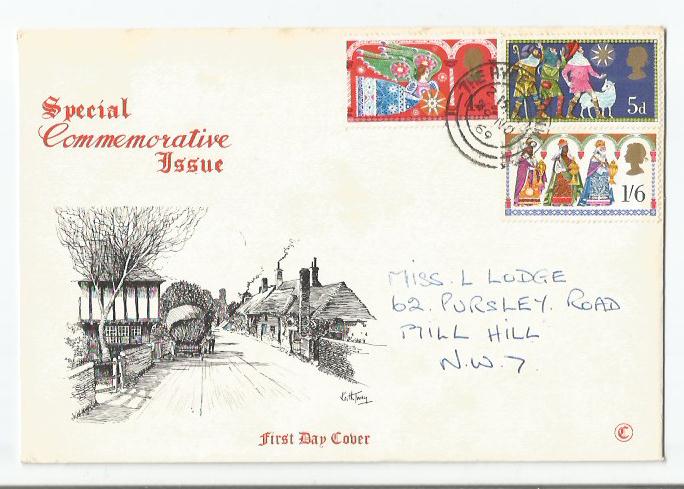 Special
Commemorative
Issue
4d
5d
1/6
69
MISS. L LODGE
62. PURSLEY. ROAD
MILL HILL
N.W.7.
First Day Cover
C